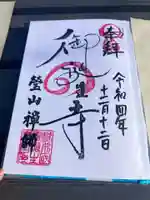 奉拝
令和四年
十二月十二日
御誕生寺
瑩山禅師